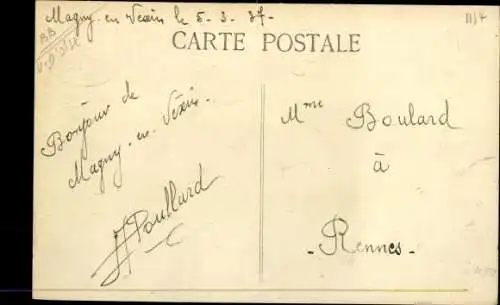 Magny-en Vexin le 5-3-37-
CARTE POSTALE
Bonjour de
Magny-en-Vexin-
Poullard
Mme Boulard
à
-Rennes-